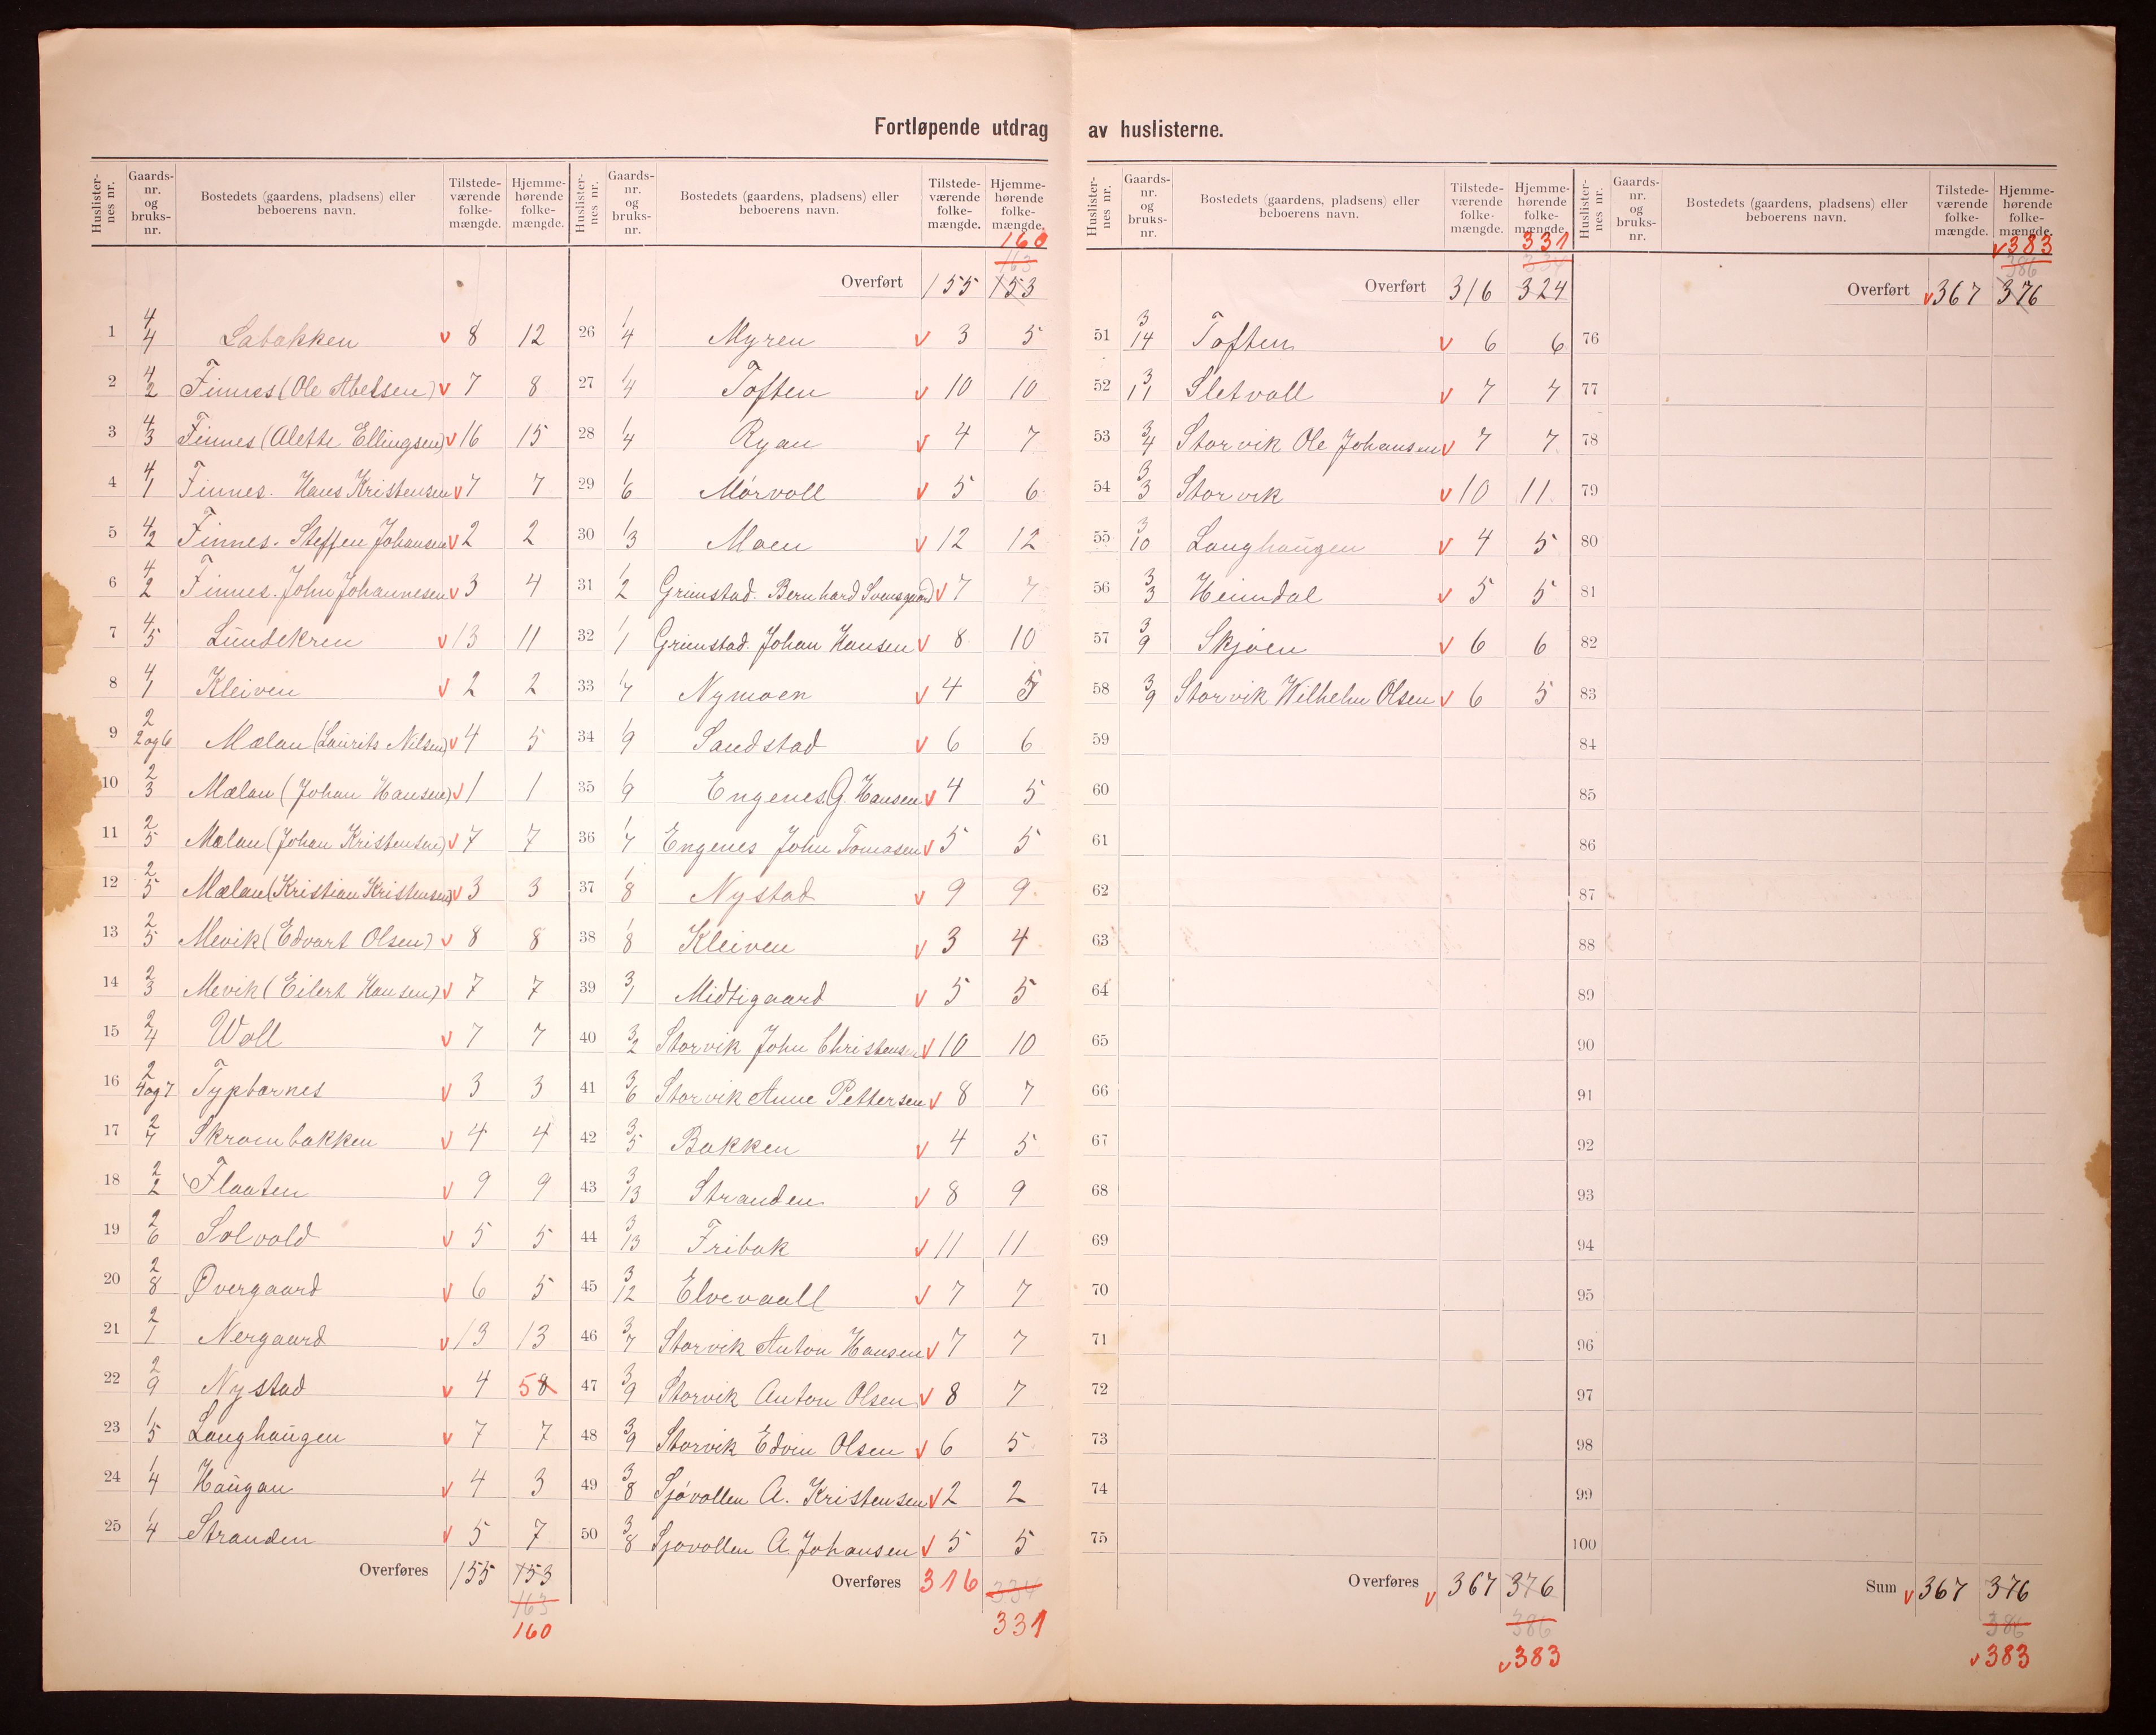 Fortløpende utdrag av huslisterne.
Huslisternes nr. | Gaards-nr. og bruks-nr. | Bostedets (gaardens, pladsens) eller beboerens navn. | Tilstedeværende folkemængde. | Hjemmehørende folkemængde.
1 | 4/4 | Labakken | v 8 | 12
2 | 4/2 | Finnes (Ole Abelsen) | v 7 | 8
3 | 4/3 | Finnes (Alette Ellingsen) | v 16 | 15
4 | 4/1 | Finnes. Hans Kristensen | v 7 | 7
5 | 4/2 | Finnes. Steffen Johansen | v 2 | 2
6 | 4/2 | Finnes. John Johannesen | v 3 | 4
7 | 4/5 | Lundekren | v 13 | 11
8 | 4/1 | Kleiven | v 2 | 2
9 | 2/2 og 6 | Mælan (Laurits Nilsen) | v 4 | 5
10 | 2/3 | Mælan (Johan Hansen) | v 1 | 1
11 | 2/5 | Mælan (Johan Kristensen) | v 7 | 7
12 | 2/5 | Mælan (Kristian Kristensen) | v 3 | 3
13 | 2/5 | Mevik (Edvart Olsen) | v 8 | 8
14 | 2/3 | Mevik (Eilert Hansen) | v 7 | 7
15 | 2/4 | Woll | v 7 | 7
16 | 2/4 og 7 | Typbarnes | v 3 | 3
17 | 2/7 | Skrombakken | v 4 | 4
18 | 2/2 | Flaaten | v 9 | 9
19 | 2/6 | Solvold | v 5 | 5
20 | 2/8 | Øvergaard | v 6 | 5
21 | 2/1 | Nergaard | v 13 | 13
22 | 2/9 | Nystad | v 4 | 5 8
23 | 1/5 | Langhaugen | v 7 | 7
24 | 1/4 | Haugan | v 4 | 3
25 | 1/4 | Stranden | v 5 | 7
Overføres 155 153
163
160
Huslisternes nr. | Gaards-nr. og bruks-nr. | Bostedets (gaardens, pladsens) eller beboerens navn. | Tilstedeværende folkemængde. | Hjemmehørende folkemængde.
160
163
Overført 155 153
26 | 1/4 | Myren | v 3 | 5
27 | 1/4 | Toften | v 10 | 10
28 | 1/4 | Ryan | v 4 | 7
29 | 1/6 | Mórvoll | v 5 | 6
30 | 1/3 | Moen | v 12 | 12
31 | 1/2 | Grimstad. Bernhard Svensgaard | v 7 | 7
32 | 1/1 | Grimstad. Johan Hansen | v 8 | 10
33 | 1/7 | Nymoen | v 4 | 5
34 | 1/9 | Sandstad | v 6 | 6
35 | 1/9 | Engenes G. Hansen | v 4 | 5
36 | 1/7 | Engenes John Tomasen | v 5 | 5
37 | 1/8 | Nystad | v 9 | 9
38 | 1/8 | Kleiven | v 3 | 4
39 | 3/1 | Midtigaard | v 5 | 5
40 | 3/2 | Storvik John Christensen | v 10 | 10
41 | 3/6 | Storvik Anne Pettersen | v 8 | 7
42 | 3/5 | Bakken | v 4 | 5
43 | 3/13 | Stranden | v 8 | 9
44 | 3/13 | Fribak | v 11 | 11
45 | 3/12 | Elvevaall | v 7 | 7
46 | 3/7 | Storvik Anton Hansen | v 7 | 7
47 | 3/9 | Storvik Anton Olsen | v 8 | 7
48 | 3/9 | Storvik Edvin Olsen | v 6 | 5
49 | 3/8 | Sjóvollen A. Kristensen | v 2 | 2
50 | 3/8 | Sjovollen A. Johansen | v 5 | 5
Overføres 316 334
331
Huslisternes nr. | Gaards-nr. og bruks-nr. | Bostedets (gaardens, pladsens) eller beboerens navn. | Tilstedeværende folkemængde. | Hjemmehørende folkemængde.
331
334
Overført 316 324
51 | 3/14 | Toften | v 6 | 6
52 | 3/11 | Sletvoll | v 7 | 7
53 | 3/4 | Storvik Ole Johansen | v 7 | 7
54 | 3/3 | Storvik | v 10 | 11
55 | 3/10 | Langhaugen | v 4 | 5
56 | 3/3 | Heimdal | v 5 | 5
57 | 3/9 | Skjoen | v 6 | 6
58 | 3/9 | Storvik Wilhelm Olsen | v 6 | 5
59
60
61
62
63
64
65
66
67
68
69
70
71
72
73
74
75
Overføres v 367 376
386
v 383
Huslisternes nr. | Gaards-nr. og bruks-nr. | Bostedets (gaardens, pladsens) eller beboerens navn. | Tilstedeværende folkemængde. | Hjemmehørende folkemængde.
v 383
386
Overført v 367 376
76
77
78
79
80
81
82
83
84
85
86
87
88
89
90
91
92
93
94
95
96
97
98
99
100
Sum v 367 376
386
v 383